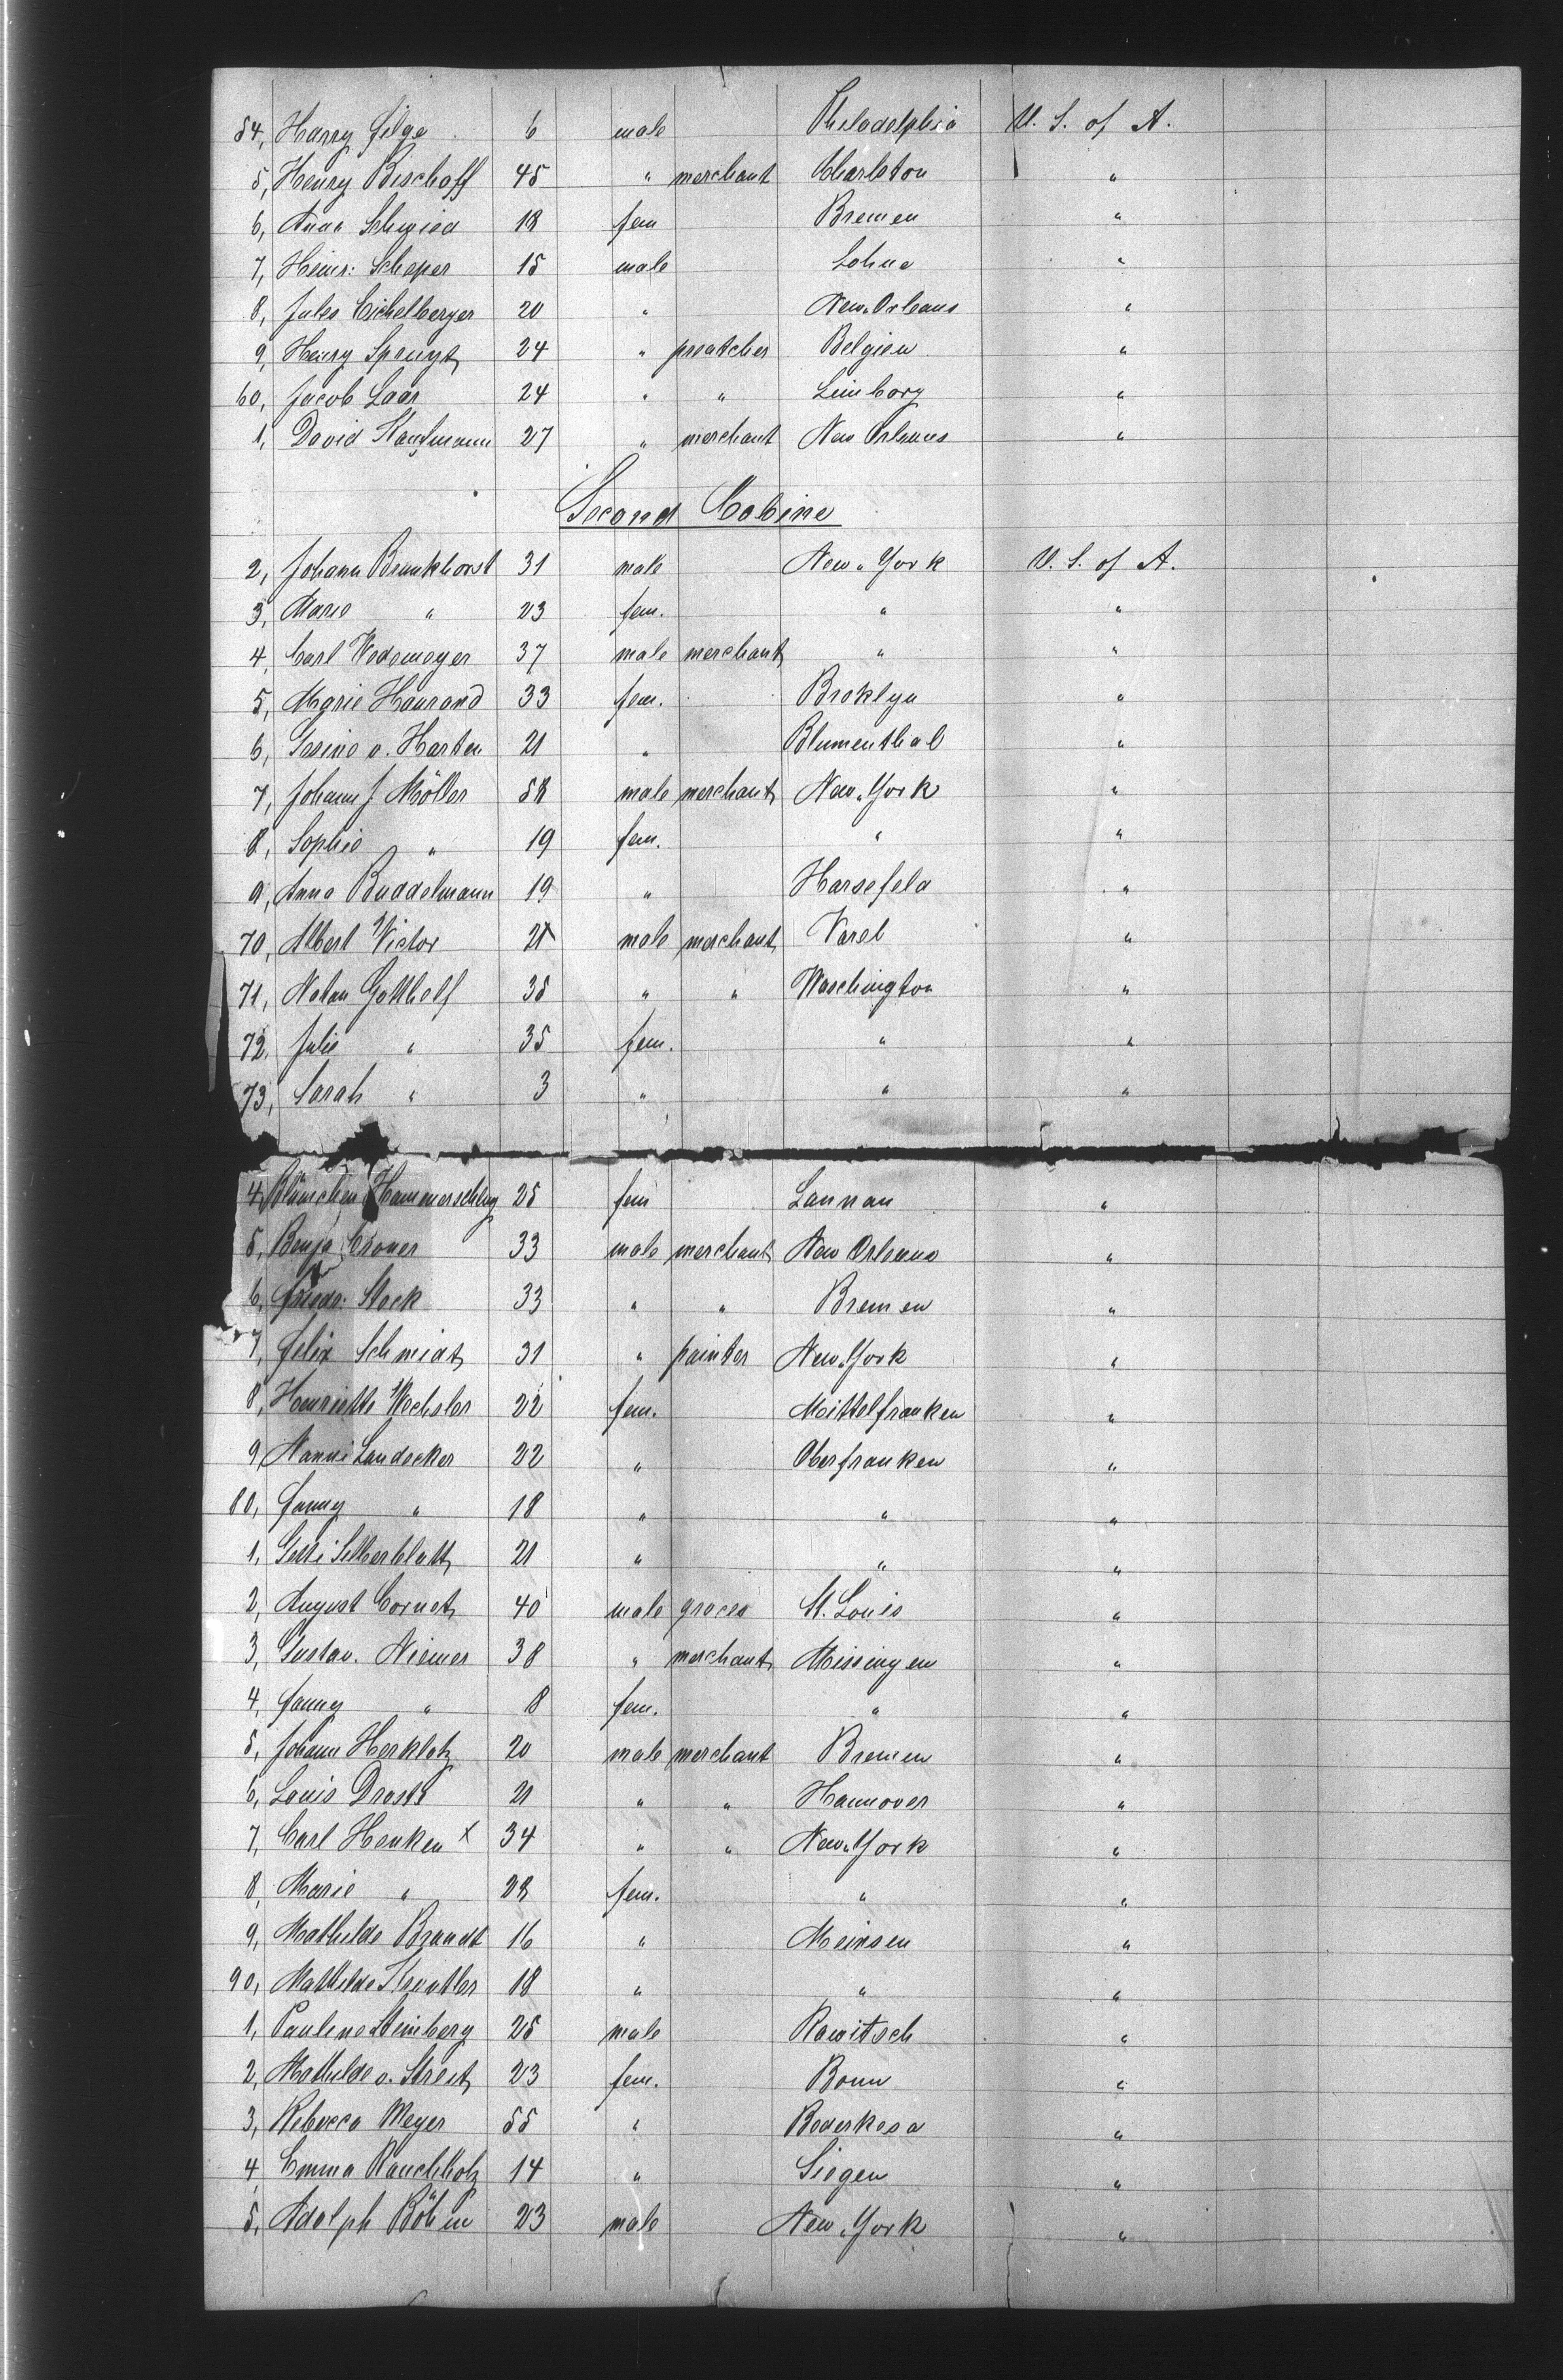 54, Harry Filge 6 male Philadelphia U. S. of A.
5, Henry Bischoff 45 " merchant Charleton "
6, Anna Schmied 18 fem Bremen "
7, Heinr: Scheper 15 male Lohne "
8, Jules Eichelberger 20 " New-Orleans "
9, Henry Spruyt 24 " preatcher Belgien "
60, Jacob Laar 24 " " Limborg "
1, David Kaufmann 27 " merchant New Orleans "
Second Cabine
2, Johann Brunkhorst 31 male New-York U. S. of A.
3, Marie " 23 fem. " "
4, Carl Wedemeyer 37 male merchant " "
5, Marie Haurand 33 fem. Broklyn "
6, Gesine v. Harten 21 " Blumenthal "
7, Johann J. Möller 58 male merchant New-York "
8, Sophie " 19 fem. " "
9, Anna Buddelmann 19 " Harsefeld "
70, Albert Victor 21 male merchant Varel "
71, Natan Gotthelf 35 " " Waschington "
72, Julie " 35 fem. " "
73, Sarah " 3 " " "
4, Blümchen Hammerschlag 25 fem "
5, Benja Croner 33 male merchant New Orleans "
6, Friedr. Stock 33 " " Bremen "
7, Felix Schmidt 31 " painter New-York "
8, Henriette Wechsler 22 fem. Mittelfranken "
9, Nanni Landecker 22 " Oberfranken "
80, Fanny " 18 " " "
1, Silberblatt 21 " " "
2, August Cornet 40 male grocer St. Louis "
3, Gustav. Niemer 38 " merchant Missingen "
4, Fanny " 8 fem. " "
5, Johann Herklotz 20 male merchant Bremen "
6, Louis Droste 21 " " Hannover "
7, Carl Henken x 34 " " New-York "
8, Marie " 28 fem. " "
9, Mathilde Brandt 16 " Meinsen "
90, Mathilde 18 " " "
1, Pauline Steinberg 25 male Rawitsch "
2, Mathilde v. Streit 23 fem. Bonn "
3, Rebecca Meyer 55 " Bederkesa "
4, Emma Rauchholz 14 " Siegen "
5, Adolph Böhm 23 male New-York "